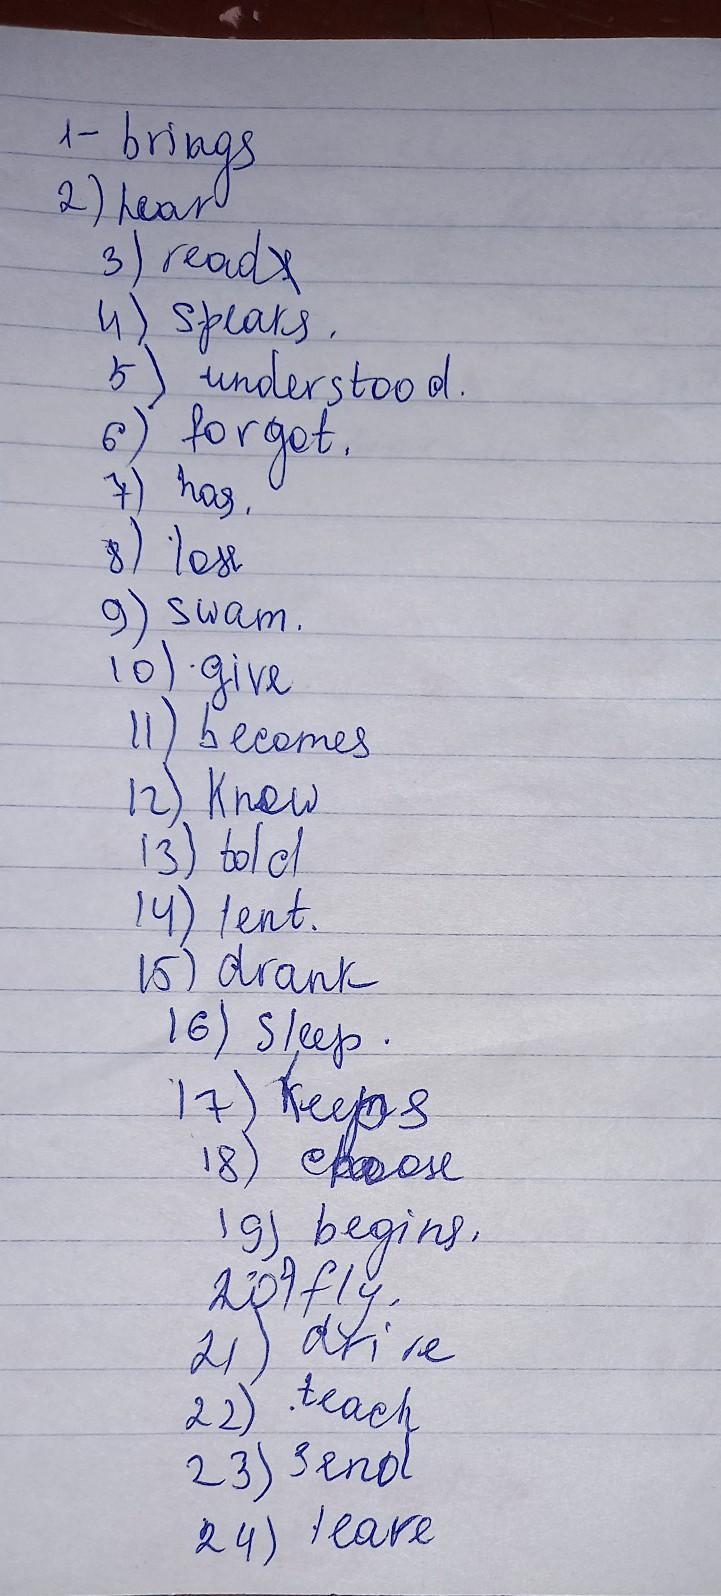 1- brings
2) hear
3) read
4) speaks.
5) understood.
6) forgot.
7) has.
8) lose
9) swam.
10) give
11) becomes
12) Know
13) told
14) lent.
15) drank
16) sleep.
17) keeps
18) choose
19) begins.
20) fly.
21) drive
22) teach
23) send
24) leave